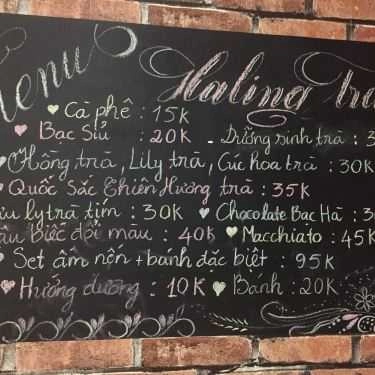 Menu Haling Trà
Cà phê : 15K
Bạc Sỉu : 20K - Dưỡng sinh trà : 3
Hồng trà, Lily trà, Cúc hoa trà : 30K
Quốc Sắc Thiên Hương trà : 35K
ưu ly trà tím : 30K Chocolate Bạc Hà : 3
ậu Biếc đổi màu : 40K Macchiato : 45K
Set ấm nến + bánh đặc biệt : 95K
Hướng dương : 10K Bánh : 20K